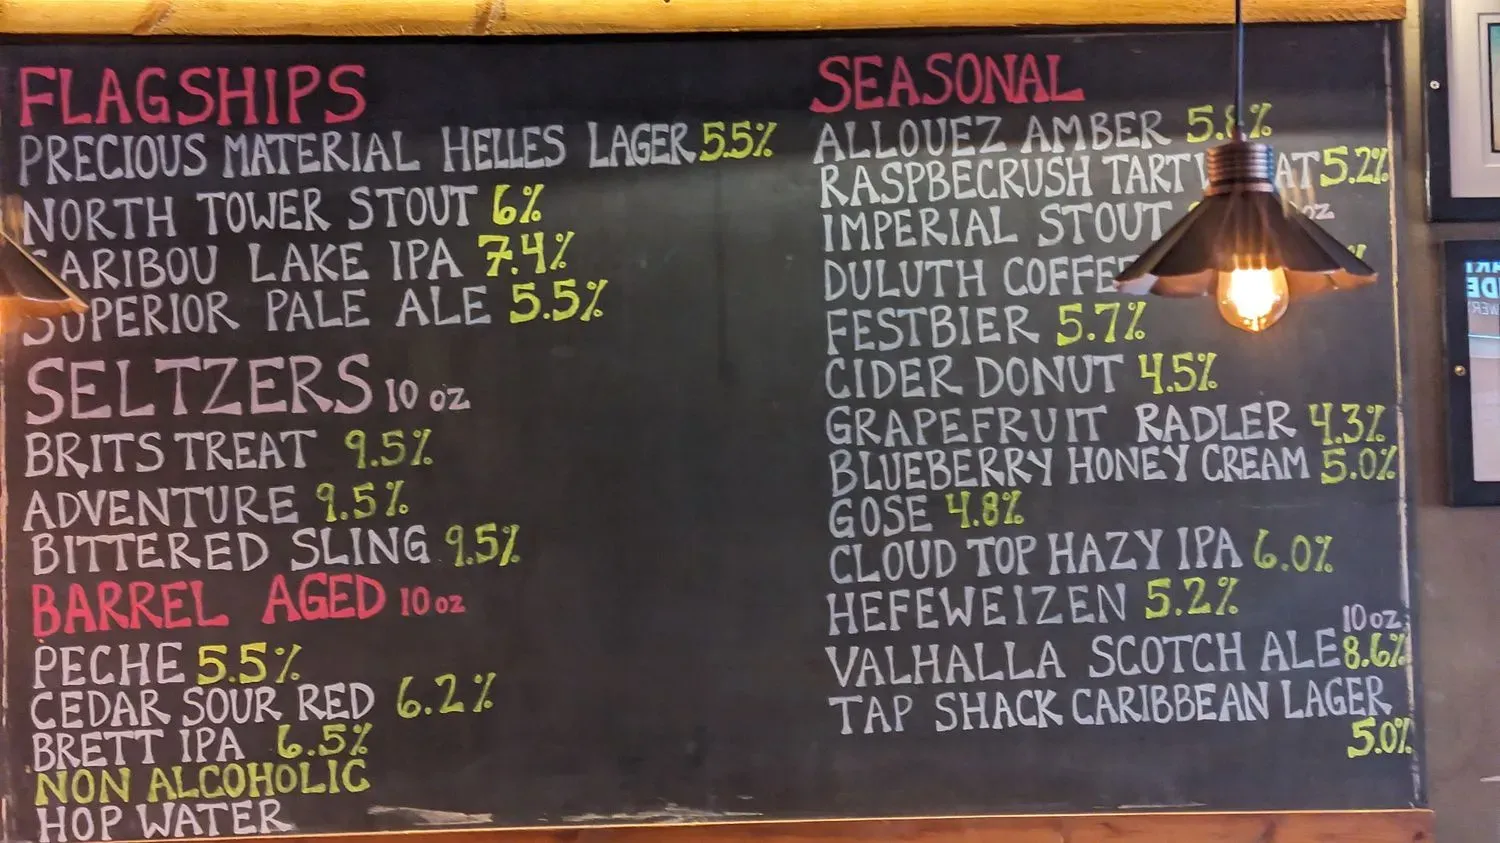 FLAGSHIPS
PRECIOUS MATERIAL HELLES LAGER 5.5%
NORTH TOWER STOUT 6%
CARIBOU LAKE IPA 7.4%
SUPERIOR PALE ALE 5.5%
SELTZERS 10 oz
BRITS TREAT 9.5%
ADVENTURE 9.5%
BITTERED SLING 9.5%
BARREL AGED 10 oz
PECHE 5.5%
CEDAR SOUR RED 6.2%
BRETT IPA 6.5%
NON ALCOHOLIC
HOP WATER
SEASONAL
ALLOUEZ AMBER
RASPBECRUSH TART 5.2%
IMPERIAL STOUT oz
DULUTH COFFEE
FESTBIER 5.7%
CIDER DONUT 4.5%
GRAPEFRUIT RADLER 4.3%
BLUEBERRY HONEY CREAM 5.0%
GOSE 4.8%
CLOUD TOP HAZY IPA 6.0%
HEFEWEIZEN 5.2%
10 oz
VALHALLA SCOTCH ALE 8.6%
TAP SHACK CARIBBEAN LAGER
5.0%